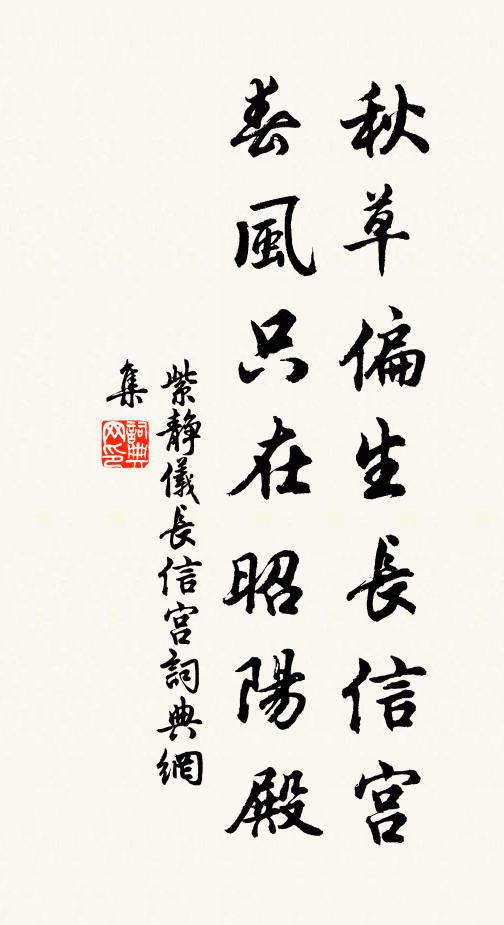 秋草偏生長信宮
春風只在昭陽殿
紫靜儀長信宮詞典網
集
詞典
网印